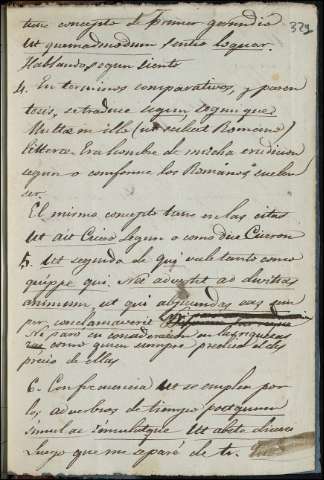 329
tiene concepto de primer gerundio
Ut quemadmodum sentio loquar.
Hablando segun siento
4. En terminos comparativos, y paren
tesis, se traduce segun, segun que
Multae in ille (ut solent Romani)
litterae. Era hombre de mucha erudicion
segun o conforme los Romanos suelen
ser.
El mismo concepto tiene en las citas
Ut ait Cicero Segun o como dice Ciceron
5. Ut seguido de qui vale tanto como
quippe qui. Nec advertit ad divitias
animum, ut qui
por
Ni paró en consideracion en las riquezas
como quien siempre el des
precio de ellas
6. Con frecuencia Ut se emplea por
los adverbios de tiempo postquam
simul ac simulatque Ut abs te
Luego que me aparé de ti.